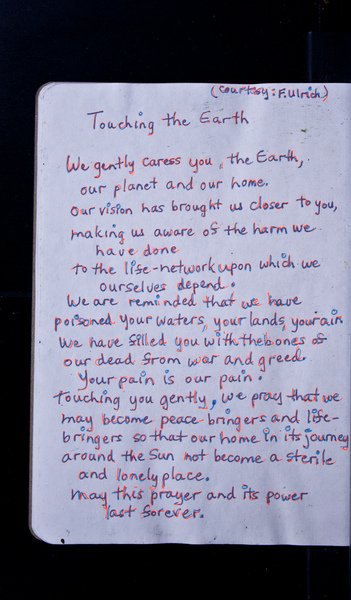 (Courtsy: F. Ulrich)
Touching the Earth
We gently caress you, the Earth,
our planet and our home.
Our vision has brought us closer to you,
making us aware of the harm we
have done
to the life-network upon which we
ourselves depend.
We are reminded that we have
poisoned your waters, your lands, your air
We have filled you with the bones of
our dead from war and greed.
Your pain is our pain.
Touching you gently, we pray that we
may become peace-bringers and life-
bringers so that our home in its journey
around the Sun not become a sterile
and lonely place.
May this prayer and its power
last forever.